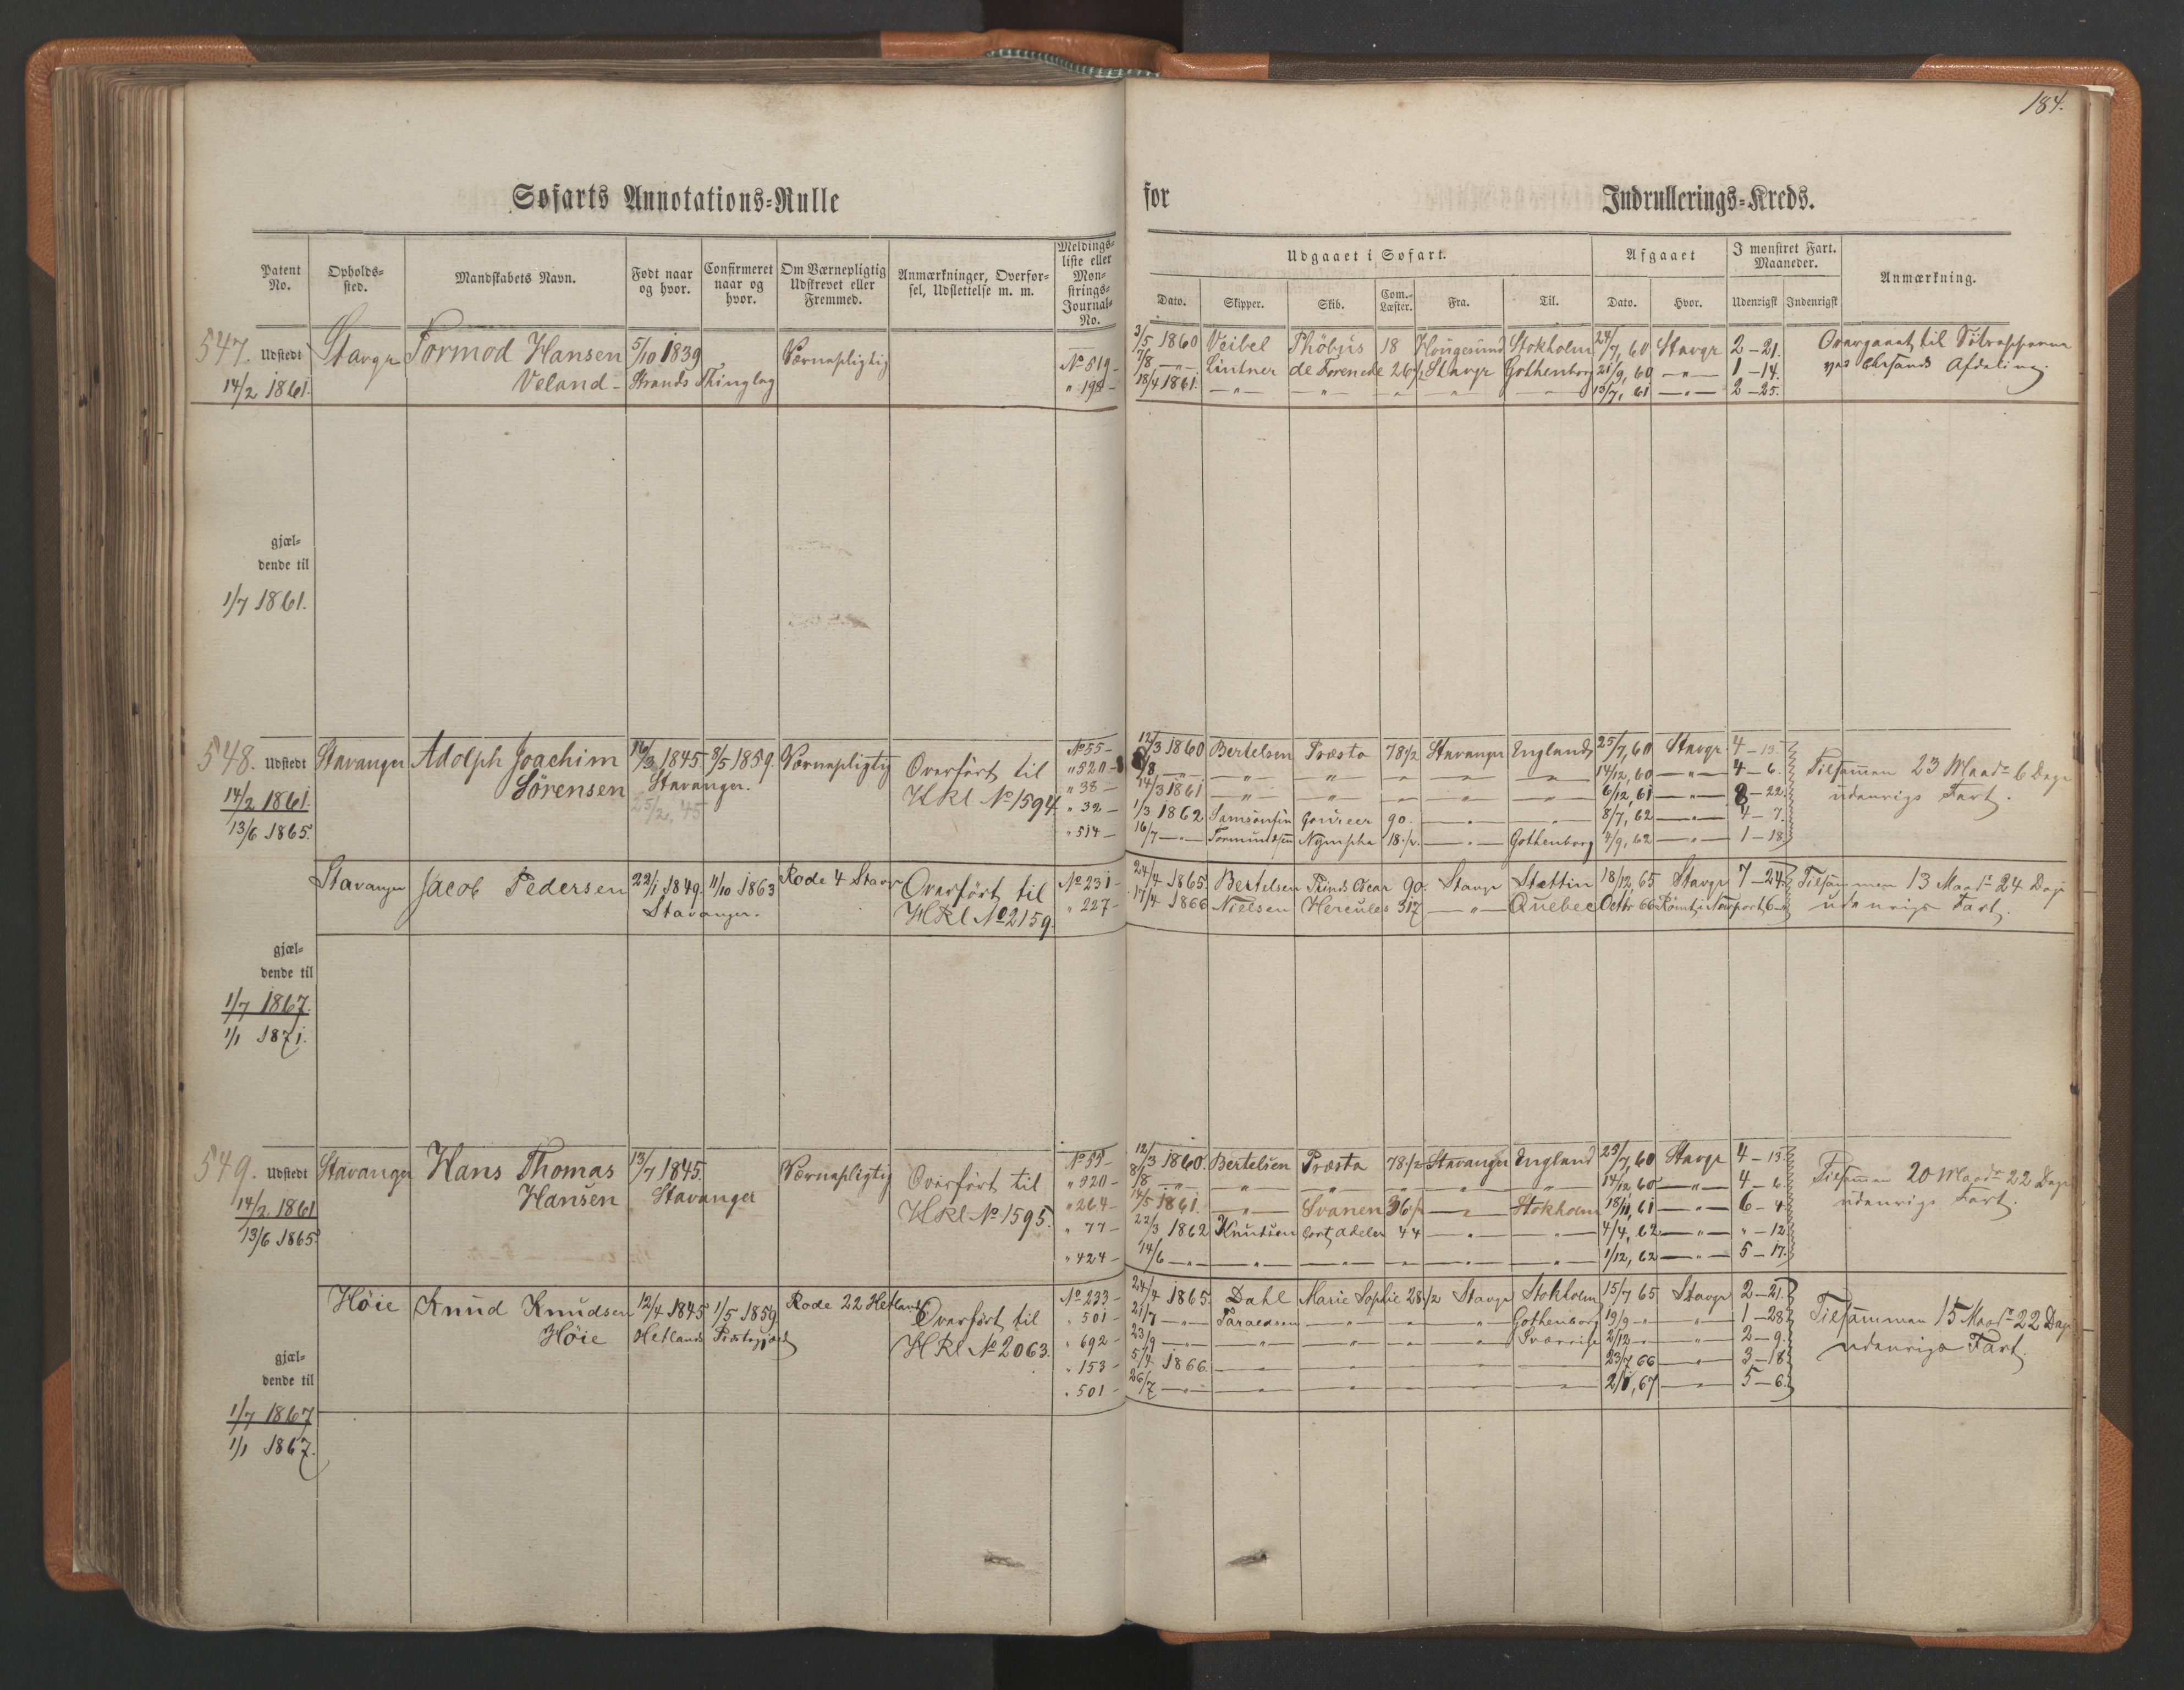 184.
Søfarts Annotations=Rulle for Indrullerings=Kreds.
Patent No. Opholds=sted. Mandskabets Navn. Født naar og hvor. Confirmeret naar og hvor. Om Værnepligtig Udskrevet eller Fremmed. Anmærkninger, Overførsel, Udslettelse m. m. Meldings=liste eller Mønstrings=Journal=No.
Udgaaet i Søfart. Afgaaet I mønstret Fart. Maaneder. Anmærkning.
Dato. Skipper. Skib. Com.=Læster. Fra. Til. Dato. Hvor. Udenrigst Indenrigst
547. Udstedt Stavgr Tormod Hansen 5/10 1839 Værnepligtig
14/2 1861. Veland - Strands Thinglag
No 819 - 3/5 1860 Veibel Phöbus 18 Hougesund Stokholm 24/7, 60 Stavgr 2-21.
7/8 -"- Lintner de Forenede 26 1/2 Stavgr Gothenborg 21/9, 60 -"- 1-14.
" 198 - 18/4 1861. -"- -"- -"- -"- 13/7, 61 -"- 2-25.
Overgaaet til Sötropperne
ved Chrsands Afdeling.
gjæl=
dende til
1/7 1861.
548. Udstedt Stavanger Adolph Joachim 16/3 1845. 8/5 1859. Værnepligtig Overfört til
14/2 1861. Sörensen Stavanger. H Rl No 1594.
13/6 1865. 25/2. 45
No 55 - 12/3 1860 Bertelsen Præsto 78 1/2 Stavanger England 25/7, 60 Stavgr 4-13.
" 520 - 8/8 -"- -"- -"- -"- -"- -"- 14/12, 60 -"- 4-6.
" 38 - 14/3 1861 -"- -"- -"- -"- -"- 6/12, 61 -"- 8-22.
" 32 - 1/3 1862 Samsonsen 90. -"- -"- 8/7, 62 -"- 4-7.
" 514 - 16/7 -"- Tormundsen Nympha 18 1/2. -"- Gothenborg 4/9, 62 -"- 1-18.
Tilsammen 23 Maadr 6 Dage
udenrigs Fart.
Stavanger Jacob Pedersen 22/1 1849. 11/10 1863 Rode 4 Stavgr Overfört til
Stavanger. H Rl No 2159.
No 231 - 24/4 1865. Bertelsen Prinds Oscar 90. Stavgr Stettin 18/12, 65 Stavgr 7-24
" 227 - 17/4 1866 Nielsen Hercules 317 -"- Quebec Octbr 66 Römt i Newport 6-
Tilsammen 13 Maadr 24 Dage
udenrigs Fart.
gjæl=
dende til
1/7 1867.
1/1 1871.
549. Udstedt Stavanger Hans Thomas 13/7 1845. Værnepligtig Overfört til
14/2 1861 Hansen Stavanger H Rl No 1595.
13/6 1865.
No 55 - 12/3 1860. Bertelsen Præsta 78 1/2 Stavanger England 25/7, 60 Stavgr 4-13.
" 520 - 8/8 -"- -"- -"- -"- -"- -"- 14/12, 60 -"- 4-6.
" 264 - 14/5 1861. -"- Svanen 36 1/2 -"- Stokholm 18/11, 61 -"- 6-4.
" 77 - 22/3 1862 Knudsen Cort Adeler 44 -"- -"- 4/4, 62 -"- "-12.
" 424 - 14/6 -"- -"- -"- -"- -"- -"- 1/12, 62 -"- 5-17.
Tilsammen 20 Maadr 22 Dage
udenrigs Fart.
Höie Knud Knudsen 12/4 1845 1/5 1859 Rode 22 Hetland Overfört til
Höie Hetlands Præstegjæld H Rl No 2063.
No 233 - 24/4 1865. Dahl Marie Sophie 28 1/2 Stavgr Stokholm 15/7 65 Stavgr 2-21.
" 501 - 21/7 -"- Taraldsen -"- -"- " Gothenborg 19/9 -"- " 1-28.
" 692 - 23/9 -"- -"- -"- -"- " Sverrige 2/12 -"- " 2-9.
" 153 - 5/4 1866. -"- -"- -"- -"- -"- 23/7 66 " 3-18.
" 501 - 26/7 -"- -"- -"- -"- -"- -"- 2/1, 67 -"- 5-6.
Tilsammen 15 Maadr 22 Dage
udenrigs Fart.
gjæl=
dende til
1/7 1867
1/1 1867.